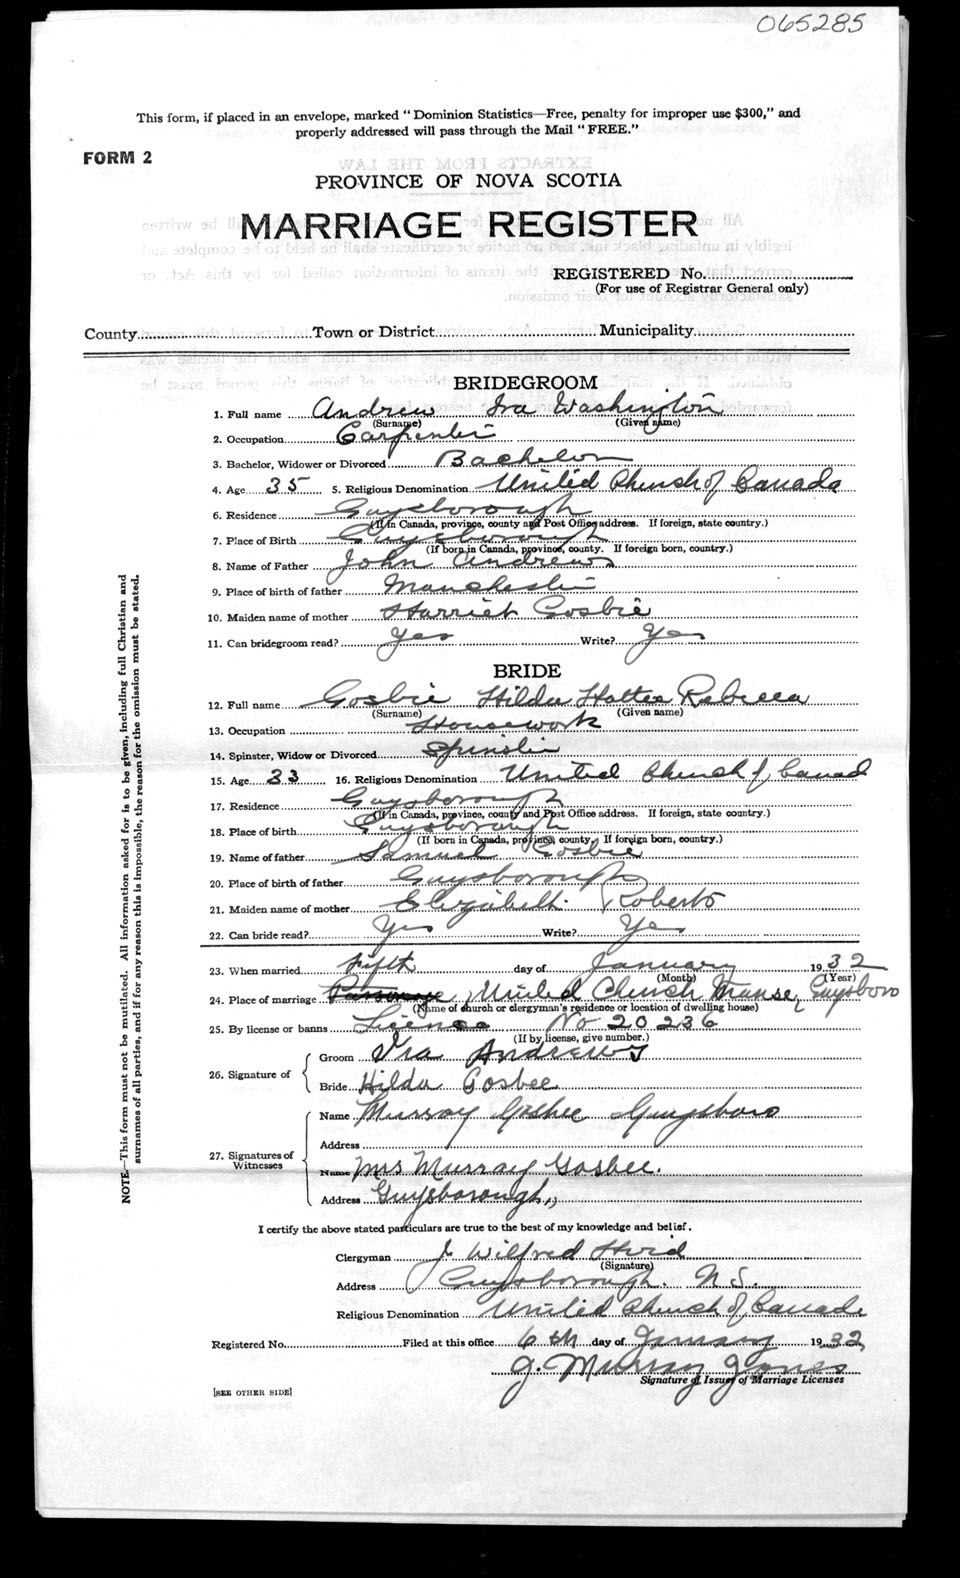 065285
This form, if placed in an envelope, marked "Dominion Statistics—Free, penalty for improper use $300," and
properly addressed will pass through the Mail "FREE."
FORM 2
PROVINCE OF NOVA SCOTIA
MARRIAGE REGISTER
REGISTERED No.
(For use of Registrar General only)
County Town or District Municipality
BRIDEGROOM
1. Full name Andrew Ira Washington
(Surname) (Given name)
2. Occupation Carpenter
3. Bachelor, Widower or Divorced Bachelor
4. Age 35 5. Religious Denomination United Church of Canada
6. Residence Guysborough
(If in Canada, province, county and Post Office address. If foreign, state country.)
7. Place of Birth Guysborough
(If born in Canada, province, county. If foreign born, country.)
8. Name of Father John Andrews
9. Place of birth of father Manchester
10. Maiden name of mother Harriet Gosbie
11. Can bridegroom read? Yes Write? Yes
BRIDE
12. Full name Gosbie Hilda Rebecca
(Surname) (Given name)
13. Occupation Housework
14. Spinster, Widow or Divorced Spinster
15. Age 33 16. Religious Denomination United Church of Canad
17. Residence Guysborough
(If in Canada, province, county and Post Office address. If foreign, state country.)
18. Place of birth Guysborough
(If born in Canada, province, county. If foreign born, country.)
19. Name of father Samuel Gosbie
20. Place of birth of father Guysborough
21. Maiden name of mother Elizabeth Roberts
22. Can bride read? Yes Write? Yes
23. When married fifth day of January 1932
(Month) (Year)
24. Place of marriage Parsonage, United Church Manse, Guysboro
(Name of church or clergyman's residence or location of dwelling house)
25. By license or banns License No 20236
(If by license, give number.)
26. Signature of
Groom Ira Andrews
Bride Hilda Gosbee
27. Signatures of Witnesses
Name Murray Gosbee Guysboro
Address
Name Mrs Murray Gosbee.
Address Guysborough,
I certify the above stated particulars are true to the best of my knowledge and belief.
Clergyman J. Wilfred
(Signature)
Address Guysborough. N.S.
Religious Denomination United Church of Canada
Registered No. Filed at this office 6th day of January 1932
J. Murray Jones
Signature of Issuer of Marriage Licenses
[SEE OTHER SIDE]
NOTE—This form must not be mutilated. All information asked for is to be given, including full Christian and
surnames of all parties, and if for any reason this is impossible, the reason for the omission must be stated.